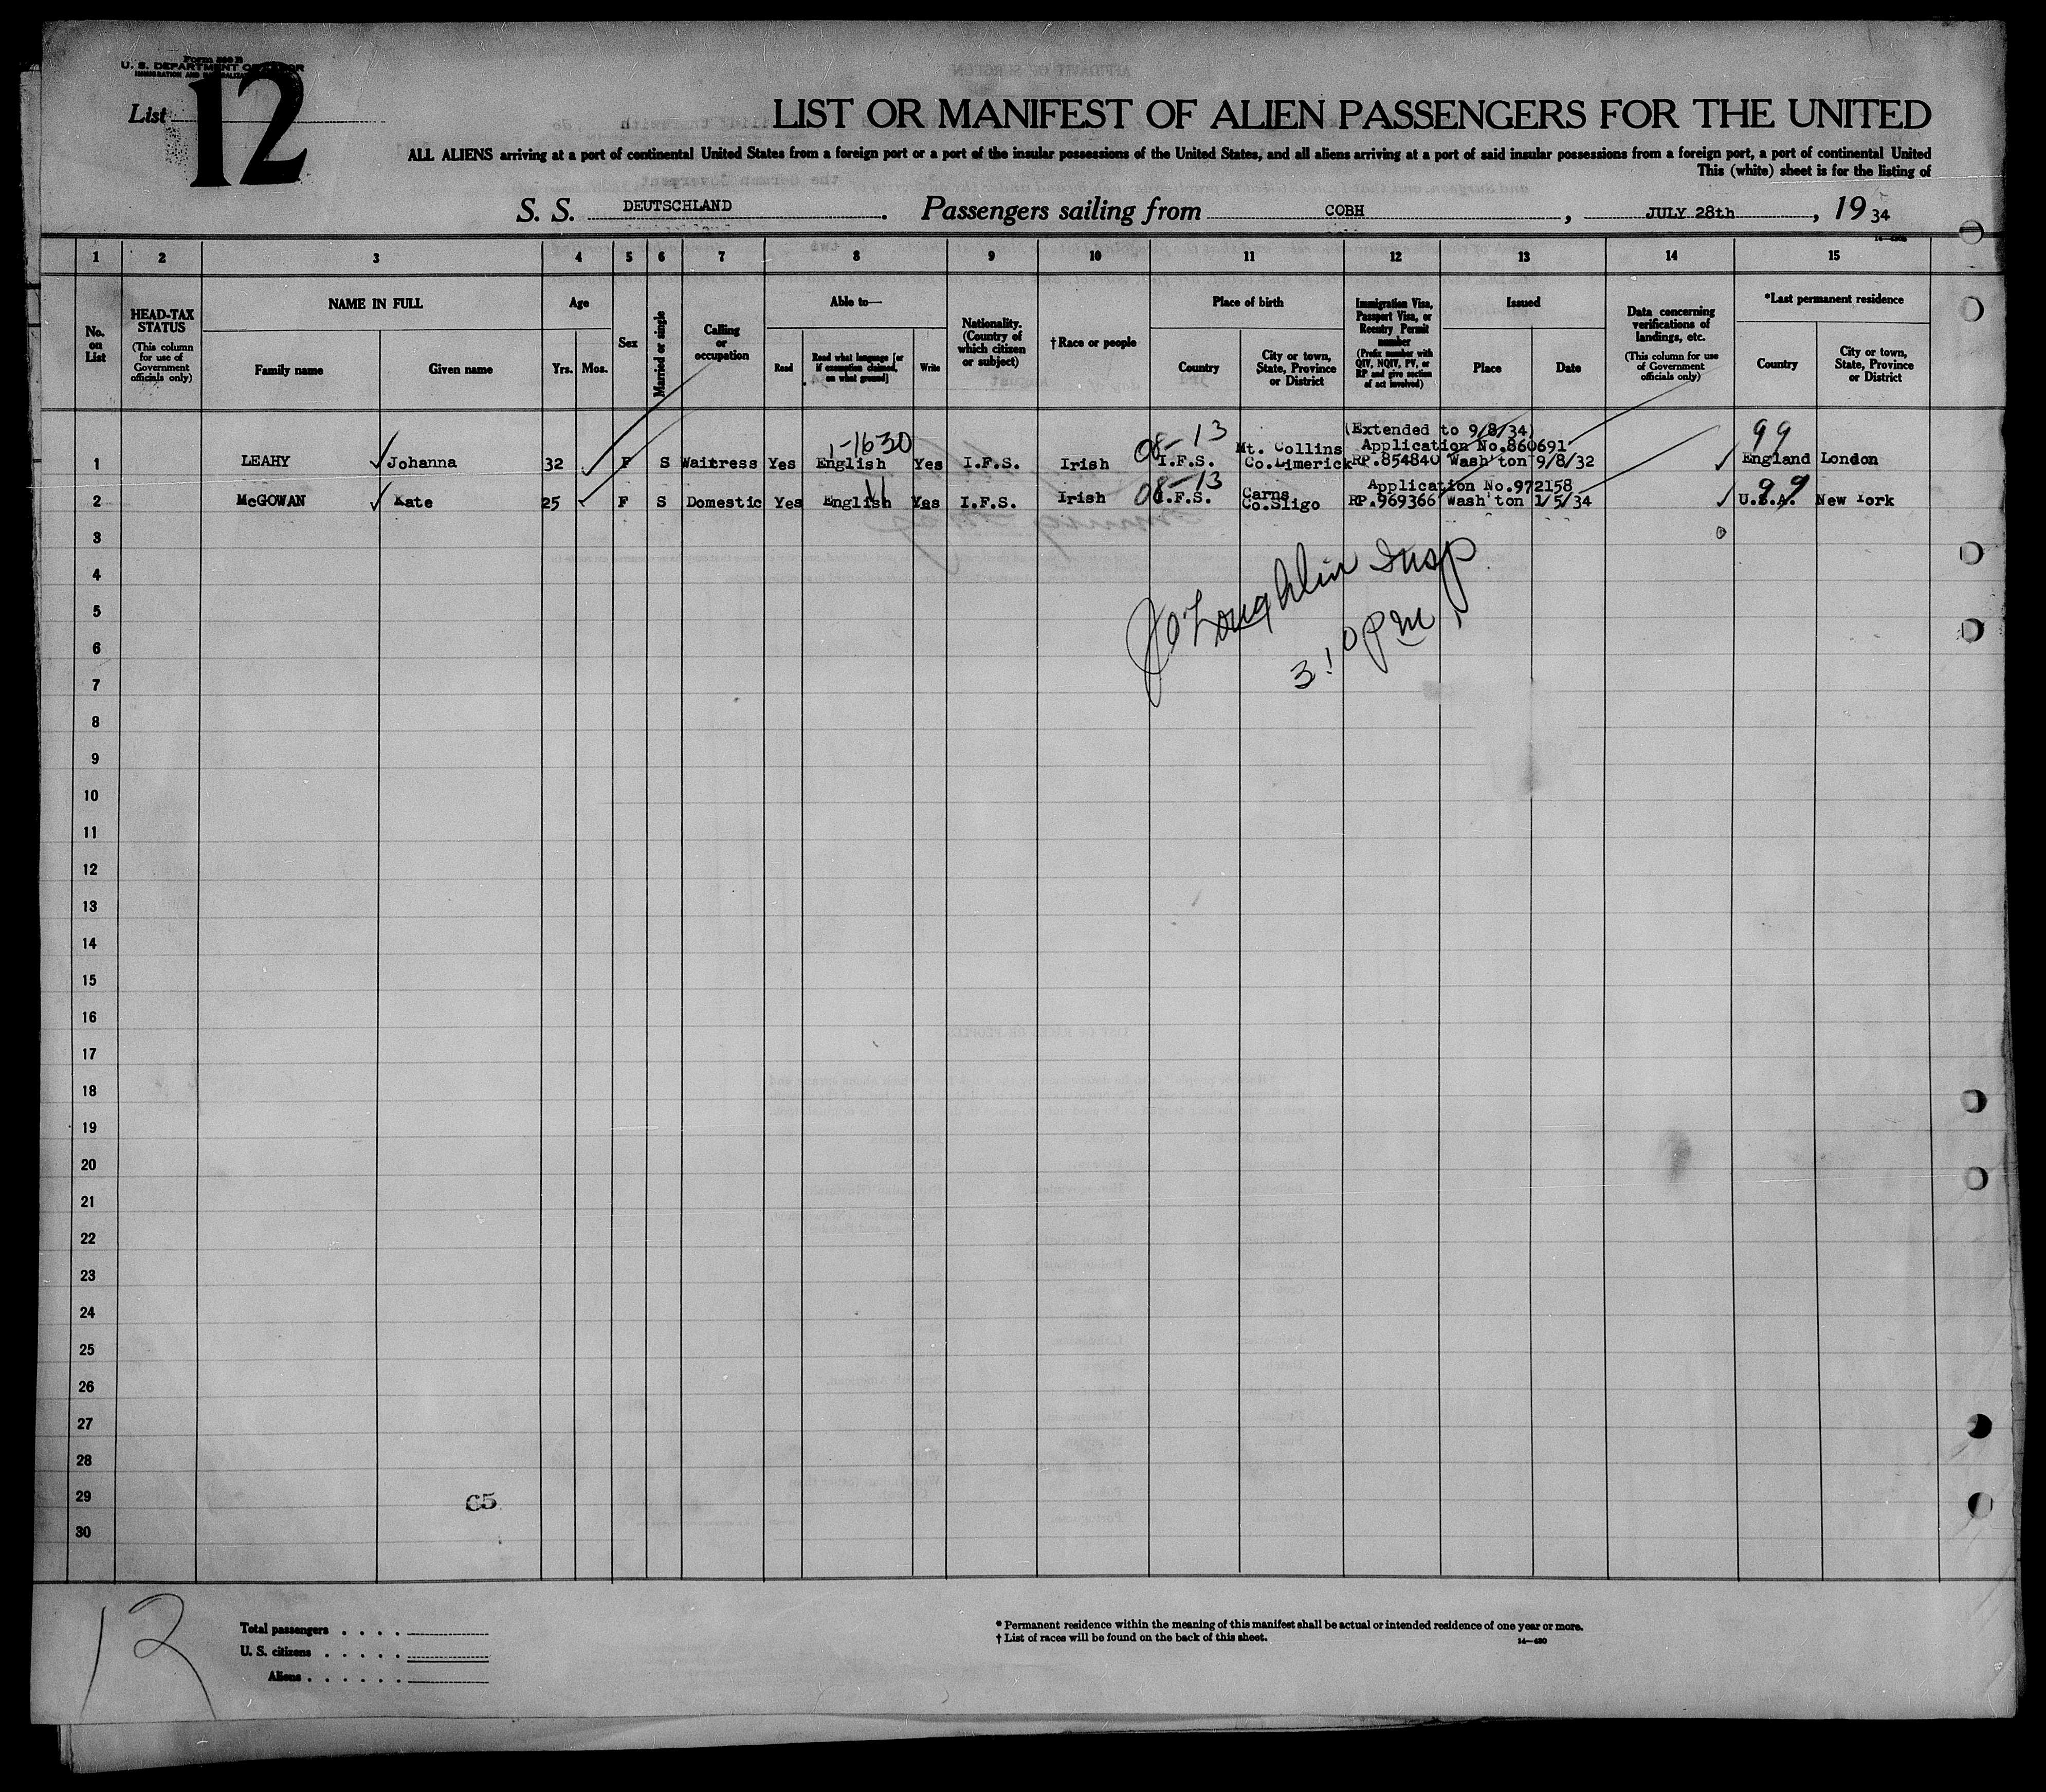 Form 500 B
U. S. DEPARTMENT OF LABOR
List 12
LIST OR MANIFEST OF ALIEN PASSENGERS FOR THE UNITED
ALL ALIENS arriving at a port of continental United States from a foreign port or a port of the insular possessions of the United States, and all aliens arriving at a port of said insular possessions from a foreign port, a port of continental United
This (white) sheet is for the listing of
S. S. DEUTSCHLAND. Passengers sailing from COBH, JULY 28th, 19 34
1 2 3 4 5 6 7 8 9 10 11 12 13 14 15
No. on List
HEAD-TAX STATUS (This column for use of Government officials only)
NAME IN FULL
Family name Given name
Age
Yrs. Mos.
Sex
Married or single
Calling or occupation
Able to—
Read Read what language [or if exemption claimed, on what ground] Write
Nationality. (Country of which citizen or subject)
†Race or people
Place of birth
Country City or town, State, Province or District
Immigration Visa, Passport Visa, or Reentry Permit number (Prefix number with QIV, NQIV, PV, or RP and give section of act involved)
Issued
Place Date
Data concerning verifications of landings, etc. (This column for use of Government officials only)
*Last permanent residence
Country City or town, State, Province or District
1-1630 08-13 (Extended to 9/8/34) 99
Mt. Collins Application No.860691
1 LEAHY Johanna 32 F S Waitress Yes English Yes I.F.S. Irish I.F.S. Co.Limerick RP.854840 Wash'ton 9/8/32 England London
08-13 Application No.972158 99
Carns
2 McGOWAN Kate 25 F S Domestic Yes English Yes I.F.S. Irish I.F.S. Co.Sligo RP.969366 Wash'ton 1/5/34 U.S.A. New York
3
4
J O'Loughlin Insp
5
6
3:10 PM
7
8
9
10
11
12
13
14
15
16
17
18
19
20
21
22
23
24
25
26
27
28
29
65
30
12
Total passengers . . . .
U. S. citizens . . . . .
Aliens . . . . . .
* Permanent residence within the meaning of this manifest shall be actual or intended residence of one year or more.
† List of races will be found on the back of this sheet.
14—430